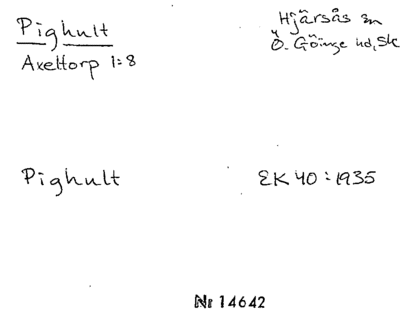 Pighult
Axeltorp 1:8
Hjärsås sn
Ö. Göinge hd, Sk
Pighult
EK 40:1935
Nr 14642